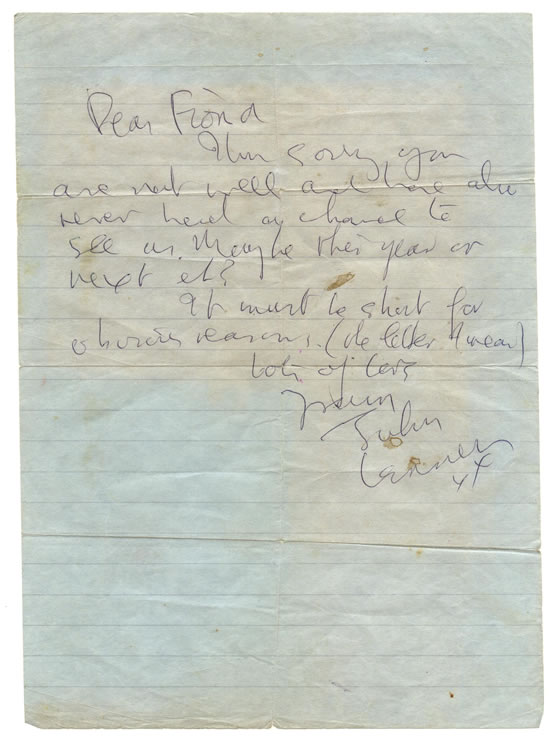 Dear Fiona
I'm sorry you
are not well and have also
never had a chance to
see us. Maybe this year or
next eh?
It must be short for
obvious reasons. (the letter I mean)
lots of love
from
John
Lennon
xx